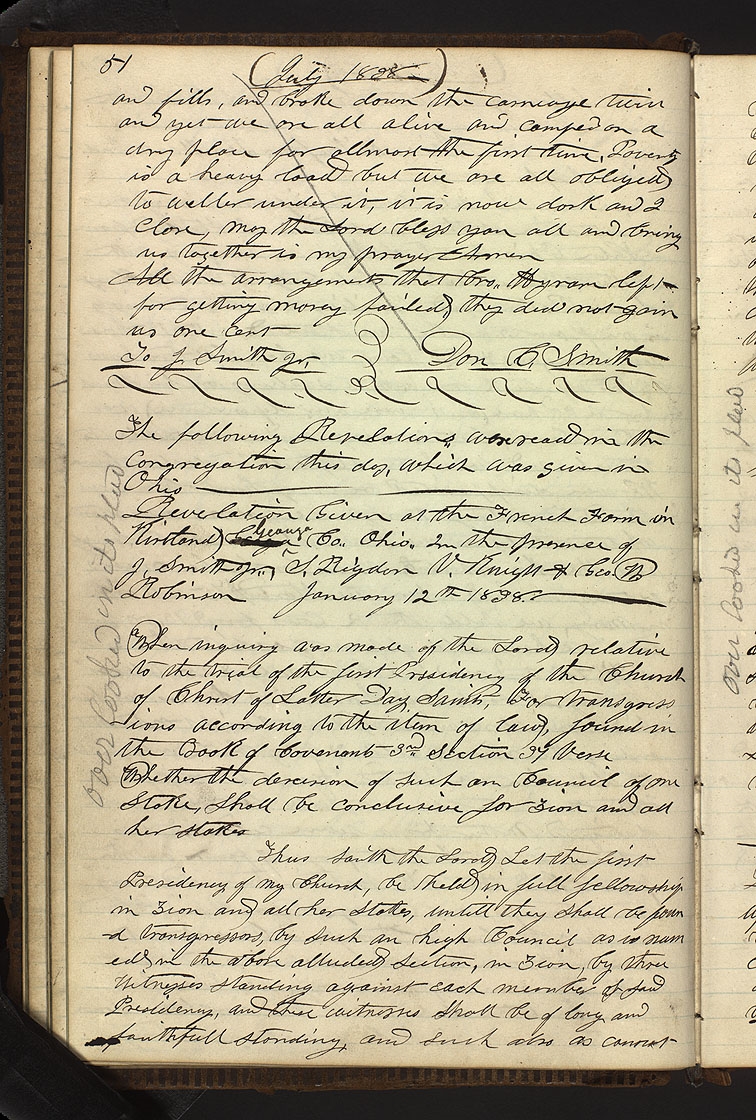 51
(July 1838)
and fills, and broke down the carriage twice
and yet we are all alive and camped on a
dry place for allmost the first time, Poverty
is a heavy load but we are all obliged
to welter under it, it is now dark and I
close, may the Lord bless you all and bring
us together is my prayer Amen
All the arrangements that bro. Hyram left
for getting money failed, they did not gain
us one cent
To J. Smith jr. Don C. Smith
The following Revelations were read in the
congregation this day, which was given in
Ohio
Revelation Given at the French Farm in
Kirtland Geauga Co. Ohio. In the presence of
J. Smith jr., S. Rigdon V. Knight & Geo. W
Robinson January 12th 1838.
When inquiry was made of the Lord relative
to the trial of the first Presidency of the Church
of Christ of Latter Day Saints, For transgress
ions according to the item of law, found in
the Book of Covenants 3rd Section 37 Verse
Whether the descision of such an Council of one
Stake, Shall be conclusive for Zion and all
her stakes
Thus saith the Lord, Let the first
Presidency of my Church, be held in full fellowship
in Zion and all her Stakes, untill they shall be foun
d transgressors, by such an high Council as is nam
ed, in the above alluded section, in Zion, by three
Witnesses standing against each member of said
Presidency, and these witnesses shall be of long and
faithfull standing, and such also as cannot
over looked in its place
over looked in its place